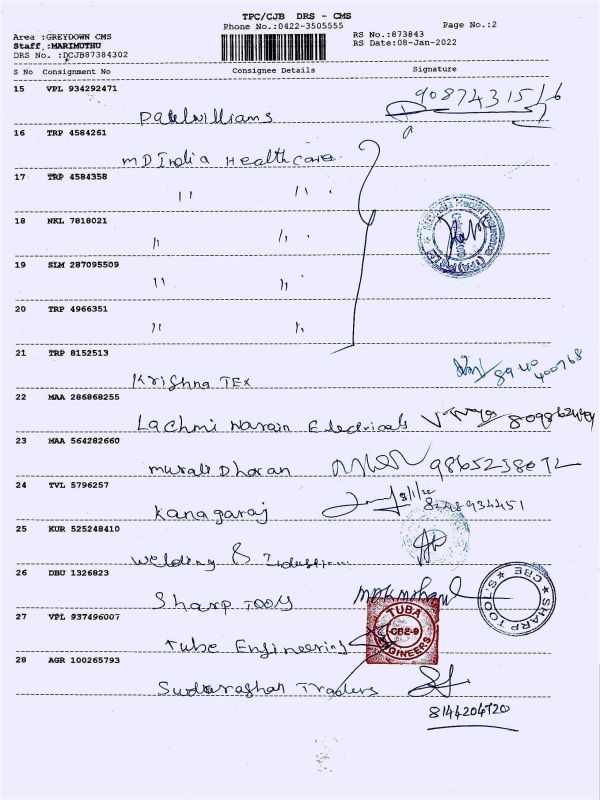 TPC/CJB DRS - CMS
Phone No.:0422-3505555
Page No.:2
Area :GREYDOWN CMS
Staff :MARIMUTHU
DRS No. :DCJB87384302
RS No.:873843
RS Date:08-Jan-2022
S No Consignment No Consignee Details Signature
15 VPL 934292471
9087431516
16 TRP 4584261
MDIndia Healthcare
17 TRP 4584358
" "
18 NKL 7818021
" "
19 SLM 287095509
" "
20 TRP 4966351
" "
21 TRP 8152513
Krishna TEX 8940
400768
22 MAA 286868255
Lachmi Narain Electricals
23 MAA 564282660
Murali Dharan
24 TVL 5796257
Kanagaraj 8/1/22
25 KUR 525248410
Welding &
26 DBU 1326823
Sharp Tools
SHARP TOOLS
CBE
27 VPL 937496007
Tube Engineering
TUBA
CBE-9
ENGINEERS
28 AGR 100265793
Traders
8144204720